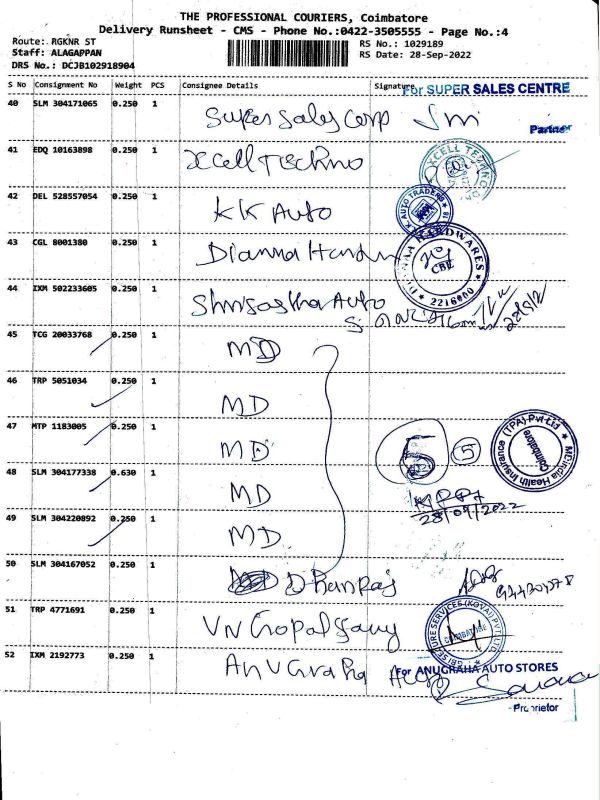 THE PROFESSIONAL COURIERS, Coimbatore
Delivery Runsheet - CMS - Phone No.:0422-3505555 - Page No.:4
Route: RGKNR ST
Staff: ALAGAPPAN
DRS No.: DCJB102918904
RS No.: 1029189
RS Date: 28-Sep-2022
S No Consignment No Weight PCS Consignee Details Signature
For SUPER SALES CENTRE
40 SLM 304171065 0.250 1 Super Sales Corp
Partner
41 EDQ 10163898 0.250 1 Xcell Techno
42 DEL 528557054 0.250 1 KK Auto
K AUTO TRADERS
43 CGL 8001380 0.250 1 Dianna
HARDWARES
CBE
2216000
44 IXM 502233605 0.250 1 Auto
45 TCG 20033768 0.250 1 MD
46 TRP 5051034 0.250 1 MD
47 MTP 1183005 0.250 1 MD
5 5
MDIndia Health Insurance (TPA) Pvt Ltd
Coimbatore
48 SLM 304177338 0.630 1 MD
28/09/2022
49 SLM 304220892 0.250 1 MD
50 SLM 304167052 0.250 1 Dhanraj
51 TRP 4771691 0.250 1 VN Gopalsamy
52 IXM 2192773 0.250 1 Anugraha
For ANUGRAHA AUTO STORES
Proprietor